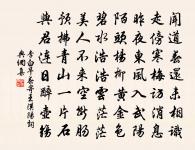 聞道春還未相識
走傍寒梅訪消息
昨夜東風入武陽
陌頭楊柳黃金色
碧水浩浩雲茫茫
美人不來空斷腸
預拂青山一片石
與君連日醉壺觴
李白早春寄王漢陽詞